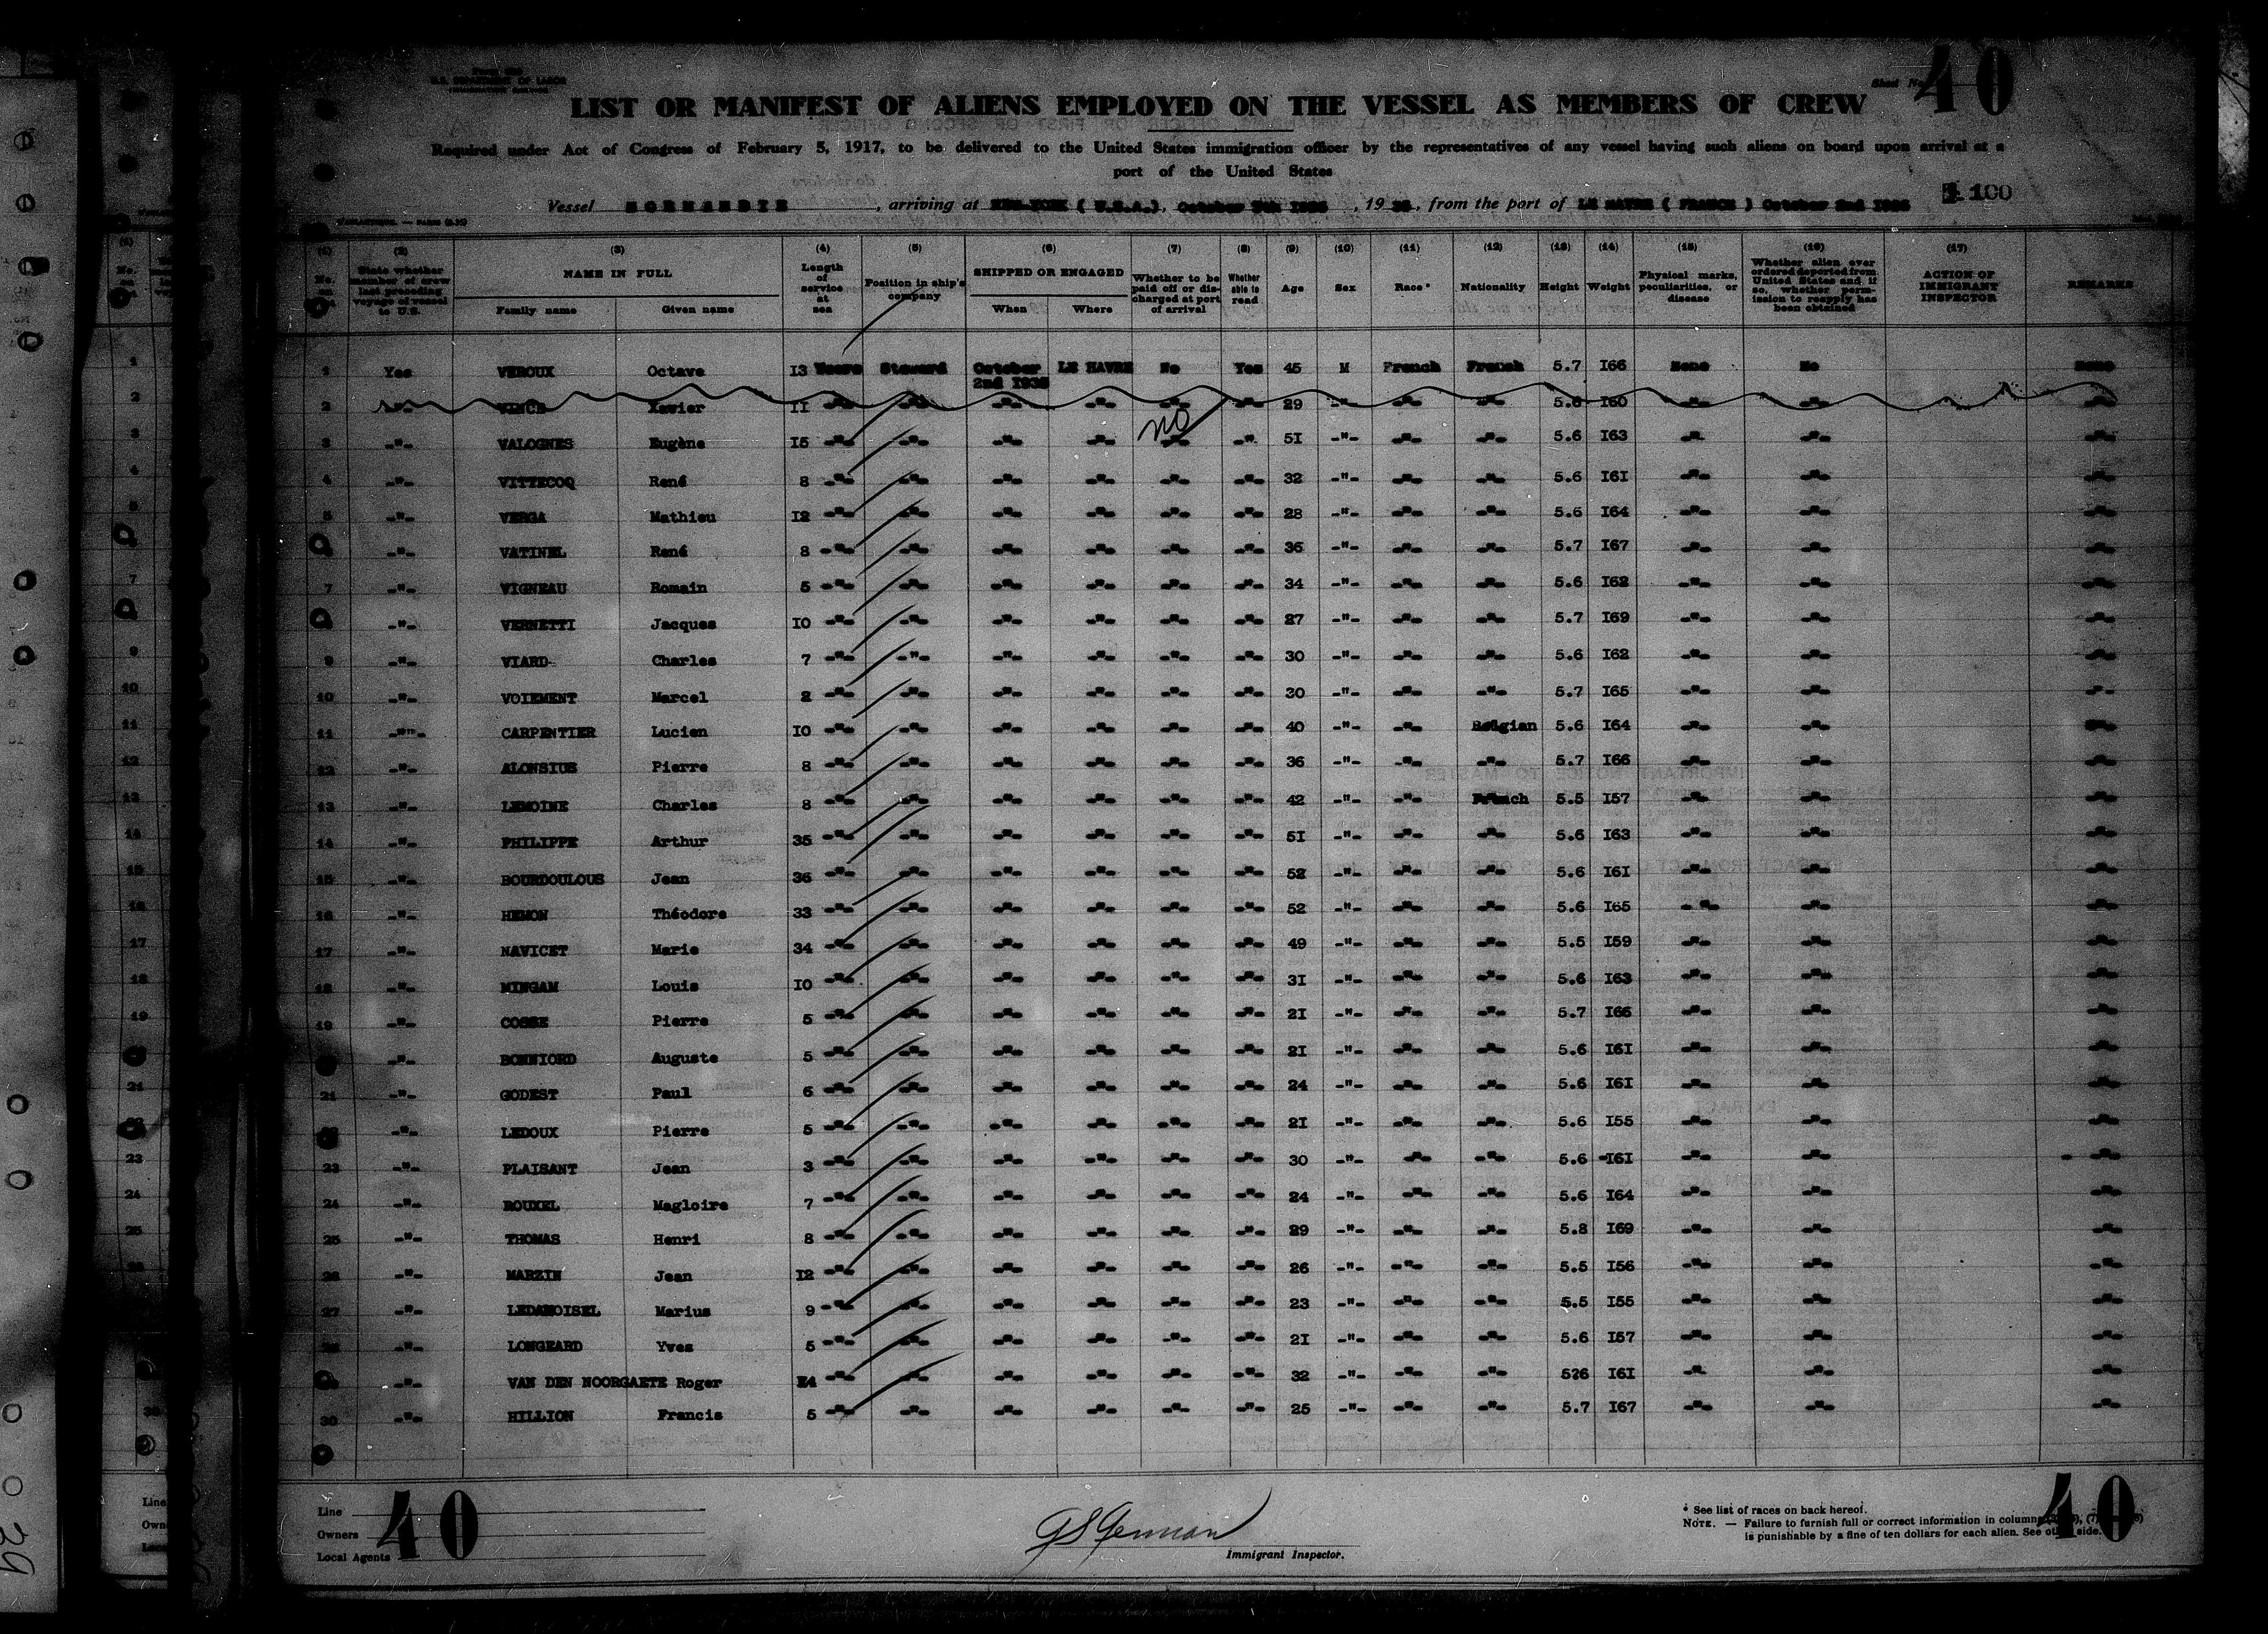 Sheet No. 40
U.S. DEPARTMENT OF LABOR
LIST OR MANIFEST OF ALIENS EMPLOYED ON THE VESSEL AS MEMBERS OF CREW
Required under Act of Congress of February 5, 1917, to be delivered to the United States immigration officer by the representatives of any vessel having such aliens on board upon arrival at a
port of the United States
100
Vessel NORMANDIE, arriving at NEW-YORK ( U.S.A.), October, 19, from the port of LE HAVRE ( FRANCE ) October 2nd
(1) (2) (3) (4) (5) (6) (7) (8) (9) (10) (11) (12) (13) (14) (15) (16) (17)
No. on | State whether member of crew last preceding voyage of vessel to U.S. | NAME IN FULL Family name Given name | Length of service at sea | Position in ship's company | SHIPPED OR ENGAGED When Where | Whether to be paid off or discharged at port of arrival | Whether able to read | Age | Sex | Race* | Nationality | Height | Weight | Physical marks, peculiarities, or disease | Whether alien ever ordered deported from United States and if so, whether permission to reapply has been obtained | ACTION OF IMMIGRANT INSPECTOR | REMARKS
1 Yes VEROUX Octave 13 Years Steward October 2nd LE HAVRE No Yes 45 M French French 5.7 I66 None No None
2 -"- VINCE Xavier II -"- -"- -"- -"- -"- -"- 29 -"- -"- -"- 5.6 I60 -"- -"- -"-
3 -"- VALOGNES Eugène I5 -"- -"- -"- -"- NO -"- -"- 5I -"- -"- -"- 5.6 I63 -"- -"- -"-
4 -"- VITTECOQ René 8 -"- -"- -"- -"- -"- -"- 32 -"- -"- -"- 5.6 I6I -"- -"- -"-
5 -"- VERGA Mathieu I2 -"- -"- -"- -"- -"- -"- 28 -"- -"- -"- 5.6 I64 -"- -"- -"-
-"- VATINEL René 8 -"- -"- -"- -"- -"- -"- 36 -"- -"- -"- 5.7 I67 -"- -"- -"-
7 -"- VIGNEAU Romain 5 -"- -"- -"- -"- -"- -"- 34 -"- -"- -"- 5.6 I62 -"- -"- -"-
-"- VERNETTI Jacques IO -"- -"- -"- -"- -"- -"- 27 -"- -"- -"- 5.7 I69 -"- -"- -"-
9 -"- VIARD Charles 7 -"- -"- -"- -"- -"- -"- 30 -"- -"- -"- 5.6 I62 -"- -"- -"-
10 -"- VOIEMENT Marcel 2 -"- -"- -"- -"- -"- -"- 30 -"- -"- -"- 5.7 I65 -"- -"- -"-
11 -"- CARPENTIER Lucien IO -"- -"- -"- -"- -"- -"- 40 -"- -"- Belgian 5.6 I64 -"- -"- -"-
12 -"- ALONSIUS Pierre 8 -"- -"- -"- -"- -"- -"- 36 -"- -"- -"- 5.7 I66 -"- -"- -"-
13 -"- LEMOINE Charles 8 -"- -"- -"- -"- -"- -"- 42 -"- -"- French 5.5 I57 -"- -"- -"-
14 -"- PHILIPPE Arthur 35 -"- -"- -"- -"- -"- -"- 5I -"- -"- -"- 5.6 I63 -"- -"- -"-
15 -"- BOURDOULOUS Jean 36 -"- -"- -"- -"- -"- -"- 52 -"- -"- -"- 5.6 I6I -"- -"- -"-
16 -"- HEMON Théodore 33 -"- -"- -"- -"- -"- -"- 52 -"- -"- -"- 5.6 I65 -"- -"- -"-
17 -"- NAVICET Marie 34 -"- -"- -"- -"- -"- -"- 49 -"- -"- -"- 5.5 I59 -"- -"- -"-
18 -"- MINGAM Louis IO -"- -"- -"- -"- -"- -"- 3I -"- -"- -"- 5.6 I63 -"- -"- -"-
19 -"- COSSE Pierre 5 -"- -"- -"- -"- -"- -"- 2I -"- -"- -"- 5.7 I66 -"- -"- -"-
-"- BONNIORD Auguste 5 -"- -"- -"- -"- -"- -"- 2I -"- -"- -"- 5.6 I6I -"- -"- -"-
21 -"- GODEST Paul 6 -"- -"- -"- -"- -"- -"- 24 -"- -"- -"- 5.6 I6I -"- -"- -"-
-"- LEDOUX Pierre 5 -"- -"- -"- -"- -"- -"- 2I -"- -"- -"- 5.6 I55 -"- -"- -"-
23 -"- PLAISANT Jean 3 -"- -"- -"- -"- -"- -"- 30 -"- -"- -"- 5.6 I6I -"- -"- -"-
24 -"- ROUXEL Magloire 7 -"- -"- -"- -"- -"- -"- 24 -"- -"- -"- 5.6 I64 -"- -"- -"-
25 -"- THOMAS Henri 8 -"- -"- -"- -"- -"- -"- 29 -"- -"- -"- 5.8 I69 -"- -"- -"-
26 -"- MARZIN Jean I2 -"- -"- -"- -"- -"- -"- 26 -"- -"- -"- 5.5 I56 -"- -"- -"-
27 -"- LEDAMOISEL Marius 9 -"- -"- -"- -"- -"- -"- 23 -"- -"- -"- 5.5 I55 -"- -"- -"-
-"- LONGEARD Yves 5 -"- -"- -"- -"- -"- -"- 2I -"- -"- -"- 5.6 I57 -"- -"- -"-
-"- VAN DEN NOORGAETE Roger I4 -"- -"- -"- -"- -"- -"- 32 -"- -"- -"- 5?6 I6I -"- -"- -"-
30 -"- HILLION Francis 5 -"- -"- -"- -"- -"- -"- 25 -"- -"- -"- 5.7 I67 -"- -"- -"-
Line
Owners
Local Agents
40
GS German
Immigrant Inspector.
* See list of races on back hereof.
NOTE. — Failure to furnish full or correct information in columns (7)
is punishable by a fine of ten dollars for each alien. See other side.
40
39